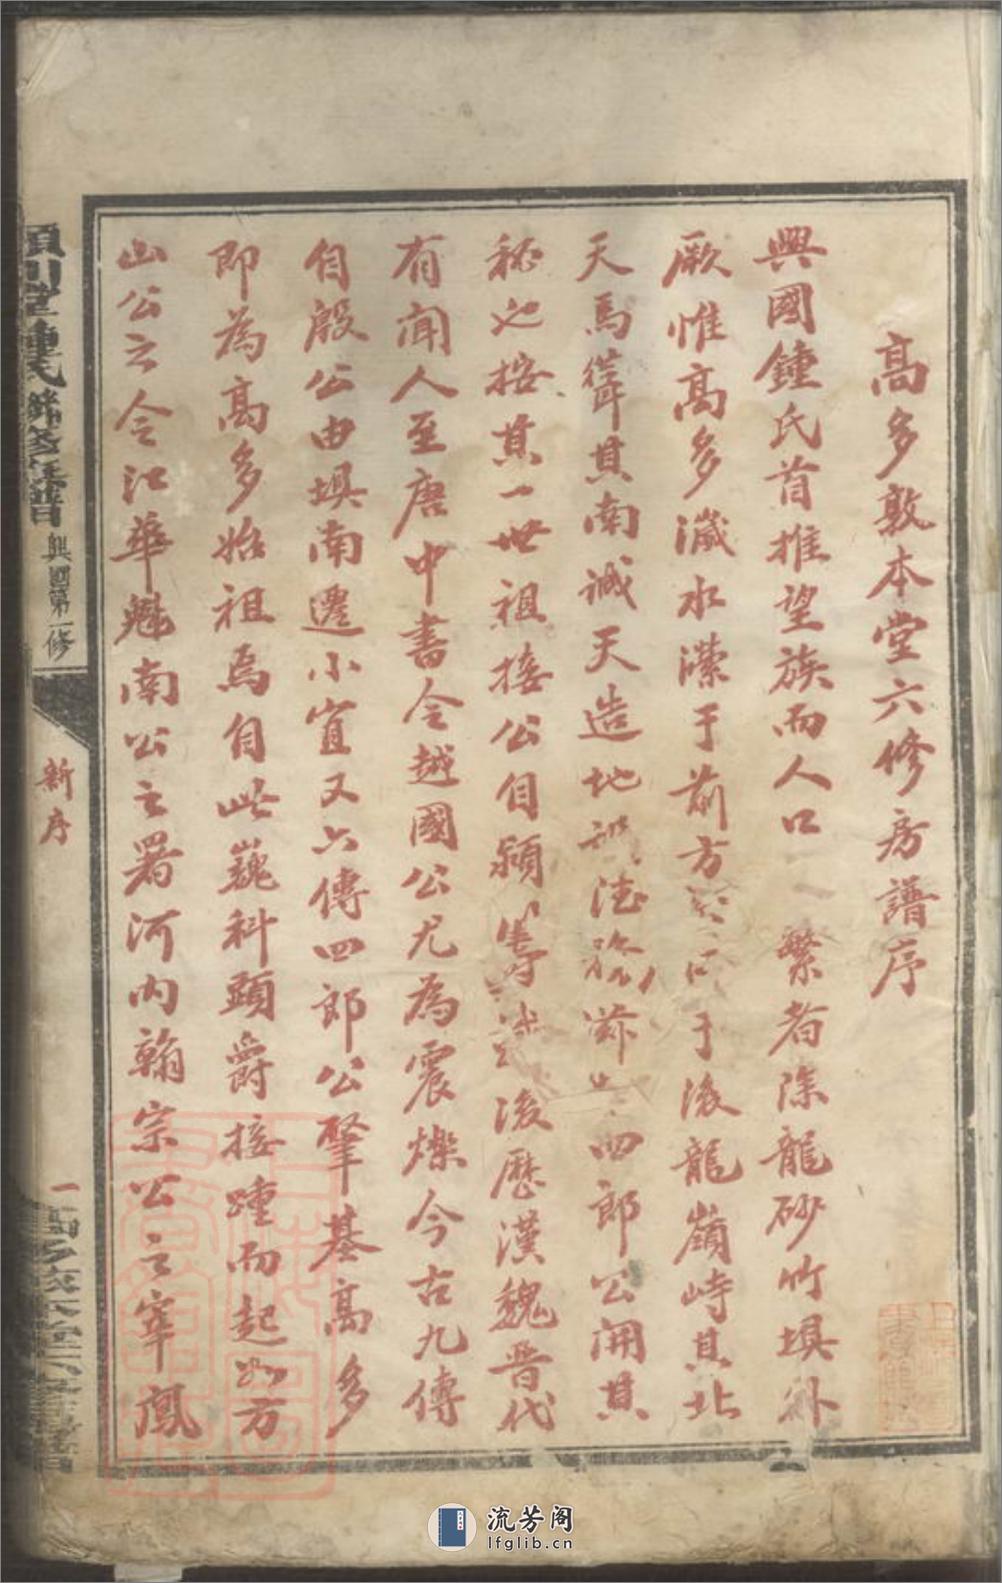 高多敦本堂六修房譜序
興國鍾氏首推望族而人口 繁者除龍砂竹埧外
厥惟高多濊水瀠于前方 于後龍嶺峙其北
天馬聳其南誠天造地設 四郎公開其
秘也按其一世祖接公自潁 後歷漢魏晉代
有聞人至唐中書令越國公尤為震爍今古九傳
自殷公由埧南遷小宜又六傳四郎公肇基高多
即為高多始祖焉自此巍科顯爵接踵而起如方
山公之令江華魁南公之署河內翰宗公之宰鳳
潁川堂鍾氏聯修族譜 興國第一修
新序
一
高多敦本堂六修房譜
流芳阁
lfglib.cn